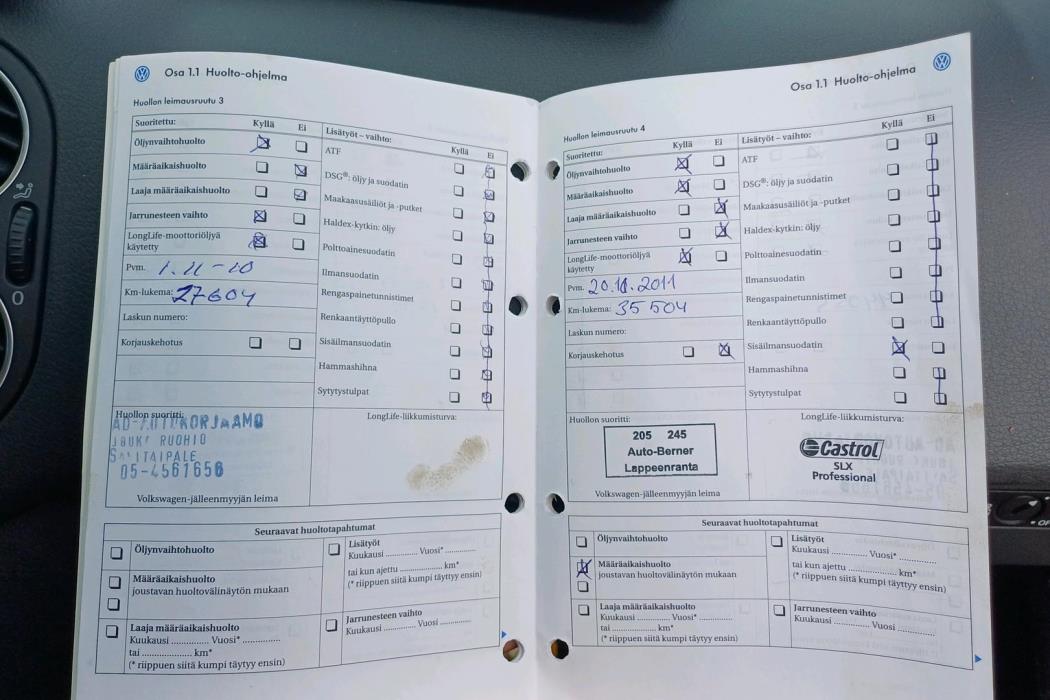 Osa 1.1 Huolto-ohjelma
Huollon leimausruutu 3
Suoritettu: Kyllä Ei
Öljynvaihtohuolto
Määräaikaishuolto
Laaja määräaikaishuolto
Jarrunesteen vaihto
LongLife-moottoriöljyä
käytetty
Pvm. 1.11-10
Km-lukema: 27604
Laskun numero:
Korjauskehotus
Lisätyöt – vaihto: Kyllä Ei
ATF
DSG®: öljy ja suodatin
Maakaasusäiliöt ja -putket
Haldex-kytkin: öljy
Polttoainesuodatin
Ilmansuodatin
Rengaspainetunnistimet
Renkaantäyttöpullo
Sisäilmansuodatin
Hammashihna
Sytytystulpat
Huollon suoritti:
AD-AUTOKORJAAMO
JOUKO RUOHIO
SAVITAIPALE
05-4561656
Volkswagen-jälleenmyyjän leima
LongLife-liikkumisturva:
Seuraavat huoltotapahtumat
Öljynvaihtohuolto
Määräaikaishuolto
joustavan huoltovälinäytön mukaan
Laaja määräaikaishuolto
Kuukausi ............ Vuosi* ............
tai ............ km*
(* riippuen siitä kumpi täytyy ensin)
Lisätyöt
Kuukausi ............ Vuosi* ............
tai kun ajettu ............ km*
(* riippuen siitä kumpi täytyy ensin)
Jarrunesteen vaihto
Kuukausi ............ Vuosi ............
Osa 1.1 Huolto-ohjelma
Huollon leimausruutu 4
Suoritettu: Kyllä Ei
Öljynvaihtohuolto
Määräaikaishuolto
Laaja määräaikaishuolto
Jarrunesteen vaihto
LongLife-moottoriöljyä
käytetty
Pvm. 20.11.2011
Km-lukema: 35 504
Laskun numero:
Korjauskehotus
Lisätyöt – vaihto: Kyllä Ei
ATF
DSG®: öljy ja suodatin
Maakaasusäiliöt ja -putket
Haldex-kytkin: öljy
Polttoainesuodatin
Ilmansuodatin
Rengaspainetunnistimet
Renkaantäyttöpullo
Sisäilmansuodatin
Hammashihna
Sytytystulpat
Huollon suoritti:
205 245
Auto-Berner
Lappeenranta
Volkswagen-jälleenmyyjän leima
LongLife-liikkumisturva:
Castrol
SLX
Professional
Seuraavat huoltotapahtumat
Öljynvaihtohuolto
Määräaikaishuolto
joustavan huoltovälinäytön mukaan
Laaja määräaikaishuolto
Kuukausi ............ Vuosi* ............
tai ............ km*
(* riippuen siitä kumpi täytyy ensin)
Lisätyöt
Kuukausi ............ Vuosi* ............
tai kun ajettu ............ km*
(* riippuen siitä kumpi täytyy ensin)
Jarrunesteen vaihto
Kuukausi ............ Vuosi ............